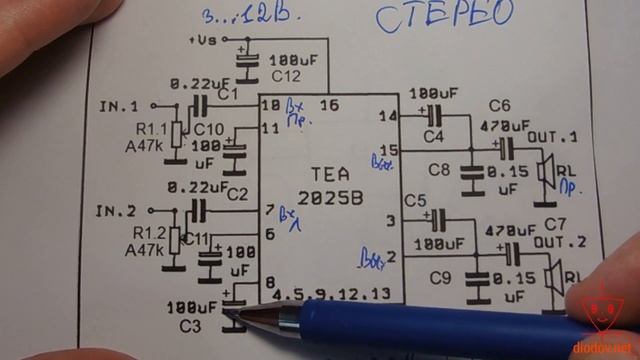 3...12В.
СТЕРЕО
+Vs
100uF
C12
0.22uF
C1
IN.1
R1.1
A47k
C10
100
uF
10
Вх
Пр.
11
16
14
15
Вых
TEA
2025B
100uF
C4
C6
470uF
OUT.1
C8
0.15
uF
RL
Пр.
0.22uF
C2
IN.2
R1.2
A47k
C11
100
uF
7
Вх
Л
6
8
100uF
C3
4,5,9,12,13
3
2
Вых
C5
100uF
C7
470uF
OUT.2
C9
0.15
uF
RL
diodov.net